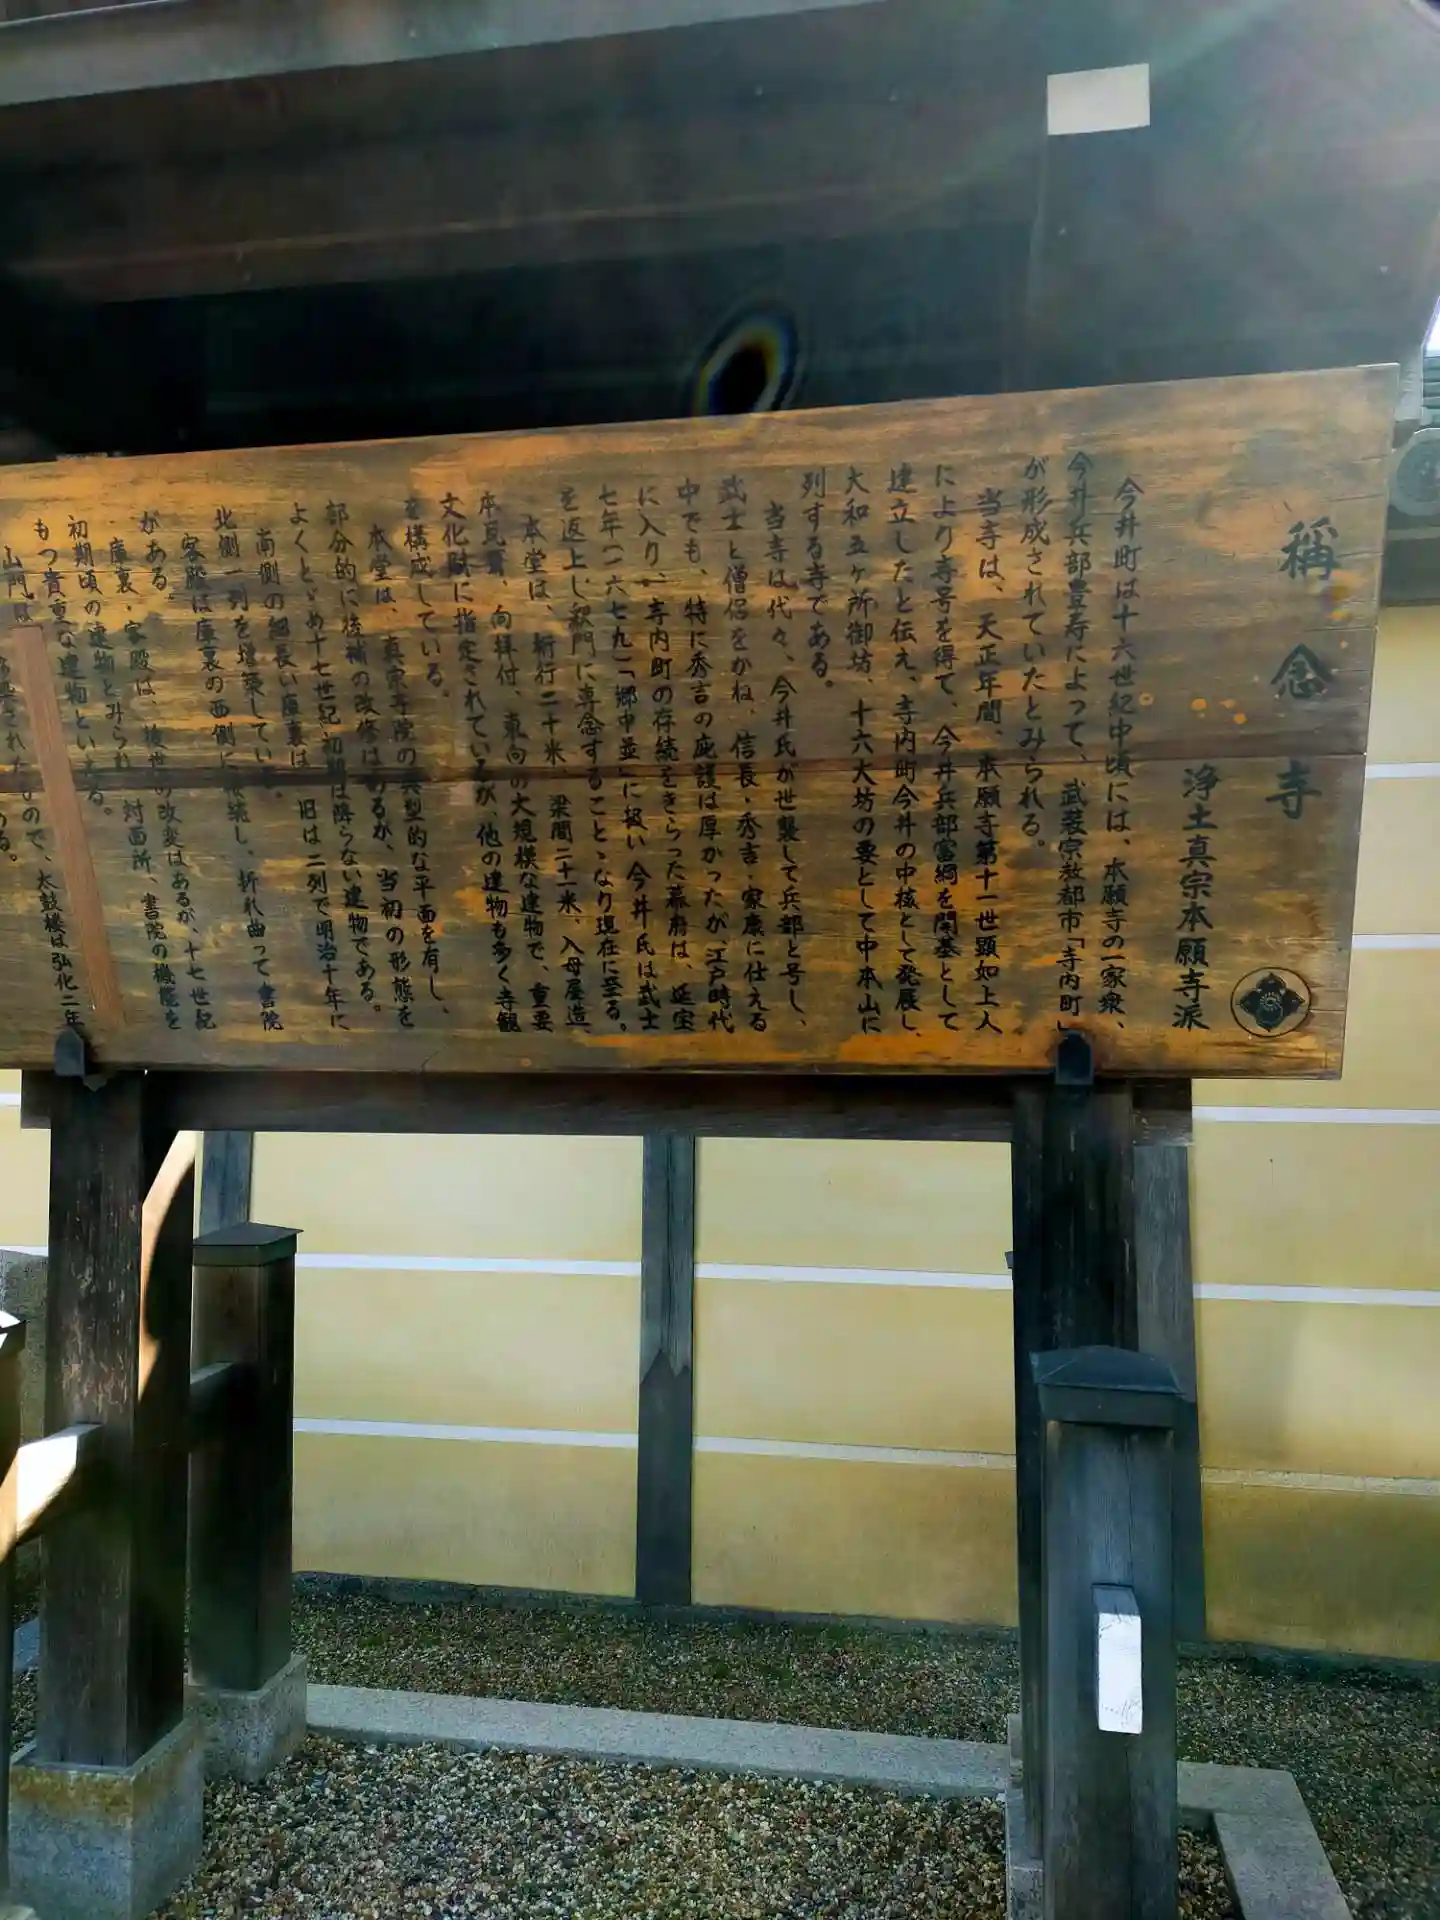 稱念寺
浄土真宗本願寺派
今井町は十六世紀中頃には、本願寺の一家衆、
今井兵部豊寿によって、武装宗教都市「寺内町」
が形成されていたとみられる。
当寺は、天正年間、本願寺第十一世顕如上人
により寺号を得て、今井兵部富綱を開基として
建立したと伝え、寺内町今井の中核として発展し、
大和五ヶ所御坊、十六大坊の要として中本山に
列する寺である。
当寺は代々、今井氏が世襲して兵部と号し、
武士と僧侶をかね、信長・秀吉・家康に仕える
中でも、特に秀吉の庇護は厚かったが、江戸時代
に入り、寺内町の存続をきらった幕府は、延宝
七年(一六七九)「郷中並」に扱い今井氏は武士
を返上し釈門に専念することゝなり現在に至る。
本堂は、桁行二十米、梁間二十一米、入母屋造、
本瓦葺、向拝付、東向の大規模な建物で、重要
文化財に指定されているが、他の建物も多く寺観
を構成している。
本堂は、真宗寺院の典型的な平面を有し、
部分的に後補の改修はあるが、当初の形態を
よくとゞめ十七世紀初期は降らない建物である。
南側の細長い庫裏は 旧は二列で明治十年に
北側一列を増築している。
客殿は庫裏の西側に接続し、折れ曲って書院
がある。
庫裏・客殿は、後世の改変はあるが、十七世紀
初期頃の建物とみられ 対面所、書院の機能を
もつ貴重な建物といえる。
山門は されたもので、太鼓楼は弘化二年
ある。